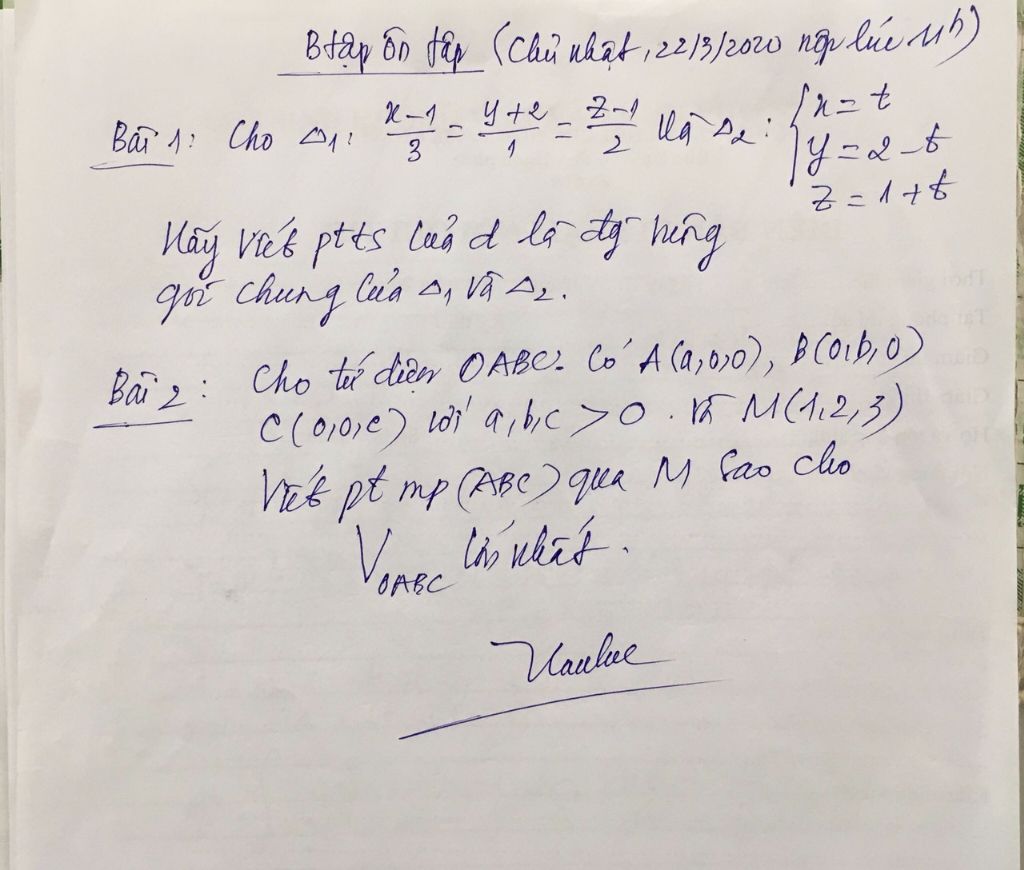 Btập ôn tập (Chủ nhật, 22/3/2020 nộp lúc 11h)
Bài 1: Cho Δ1: x-1/3 = y+2/1 = z-1/2 và Δ2: { x = t
y = 2 - t
z = 1 + t
Hãy viết ptts của d là đg
chung của Δ1 và Δ2.
Bài 2: Cho tứ diện OABC. Có A(a,0,0), B(0,b,0)
C(0,0,c) với a,b,c > 0 . và M(1,2,3)
Viết pt mp (ABC) qua M sao cho
VOABC nhất.